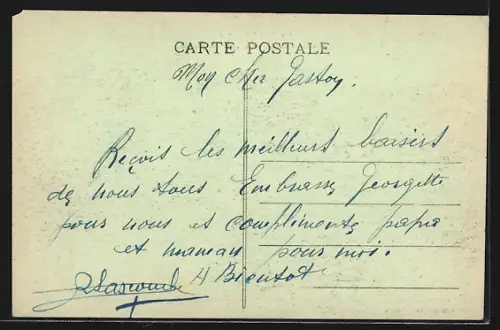 CARTE POSTALE
Moy cher Gastoy.
Reçois les meilleurs baisers
de nous tous. Embrasse Georgette
pour nous et compliments papa
et maman pour moi.
A Bientot